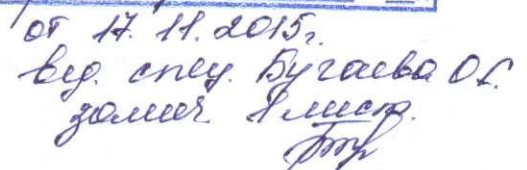 от 17.11.2015г.
вед. спец. Бугаева О.С.
замеч. 1 лист.